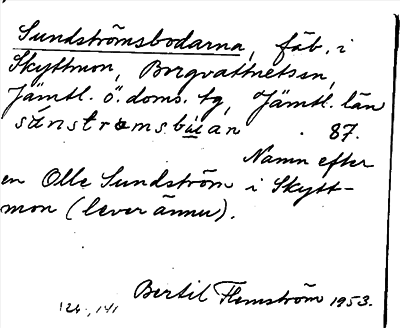 Sundströmsbodarna, fäb. i
Skyttmon, Borgvattnets sn,
Jämtl. ö. doms. tg, Jämtl. län
87.
Namn efter
en Olle Sundström i Skytt-
mon (lever ännu).
Bertil Flemström 1953.